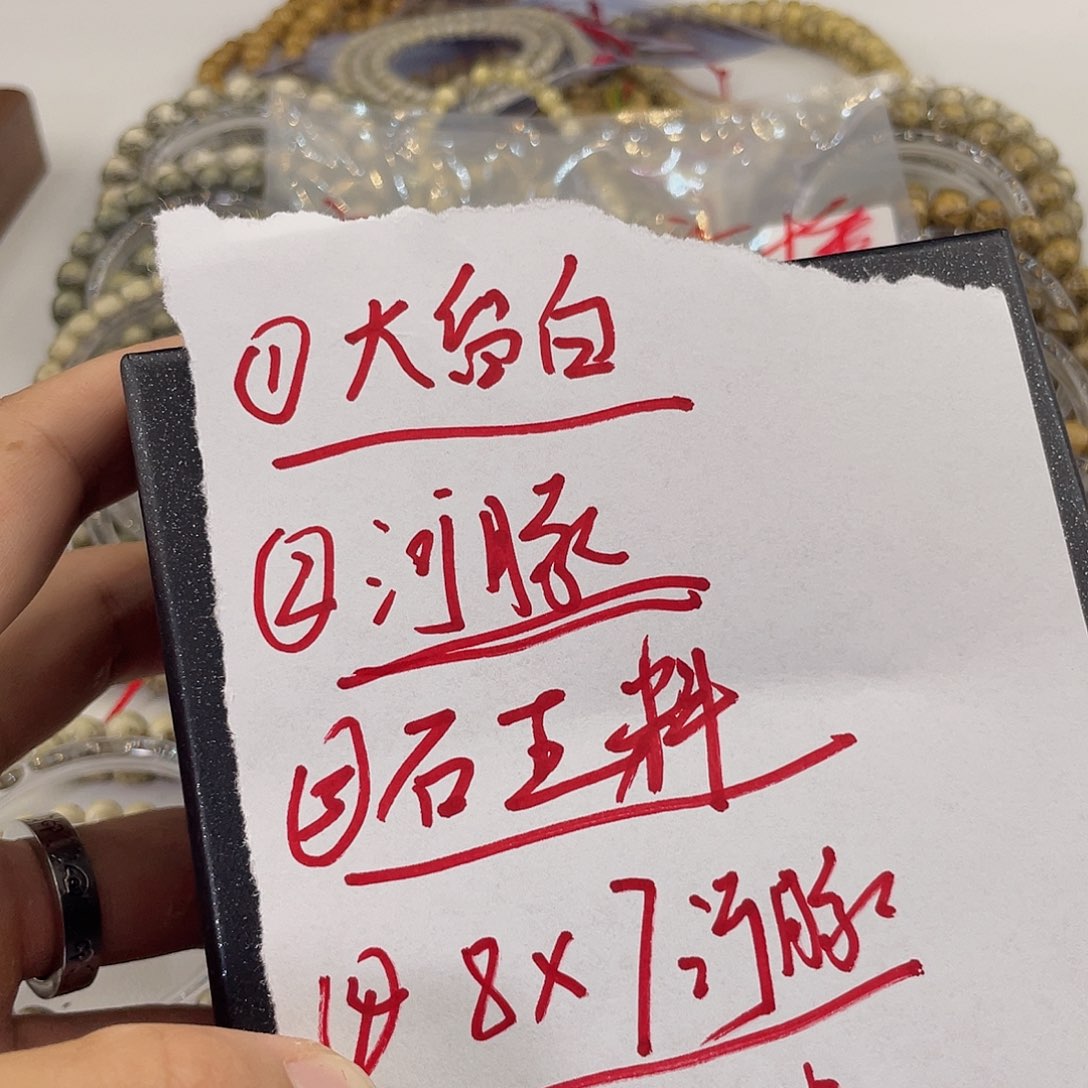 ①大吕白
②河豚
③石王料
④8×7河豚